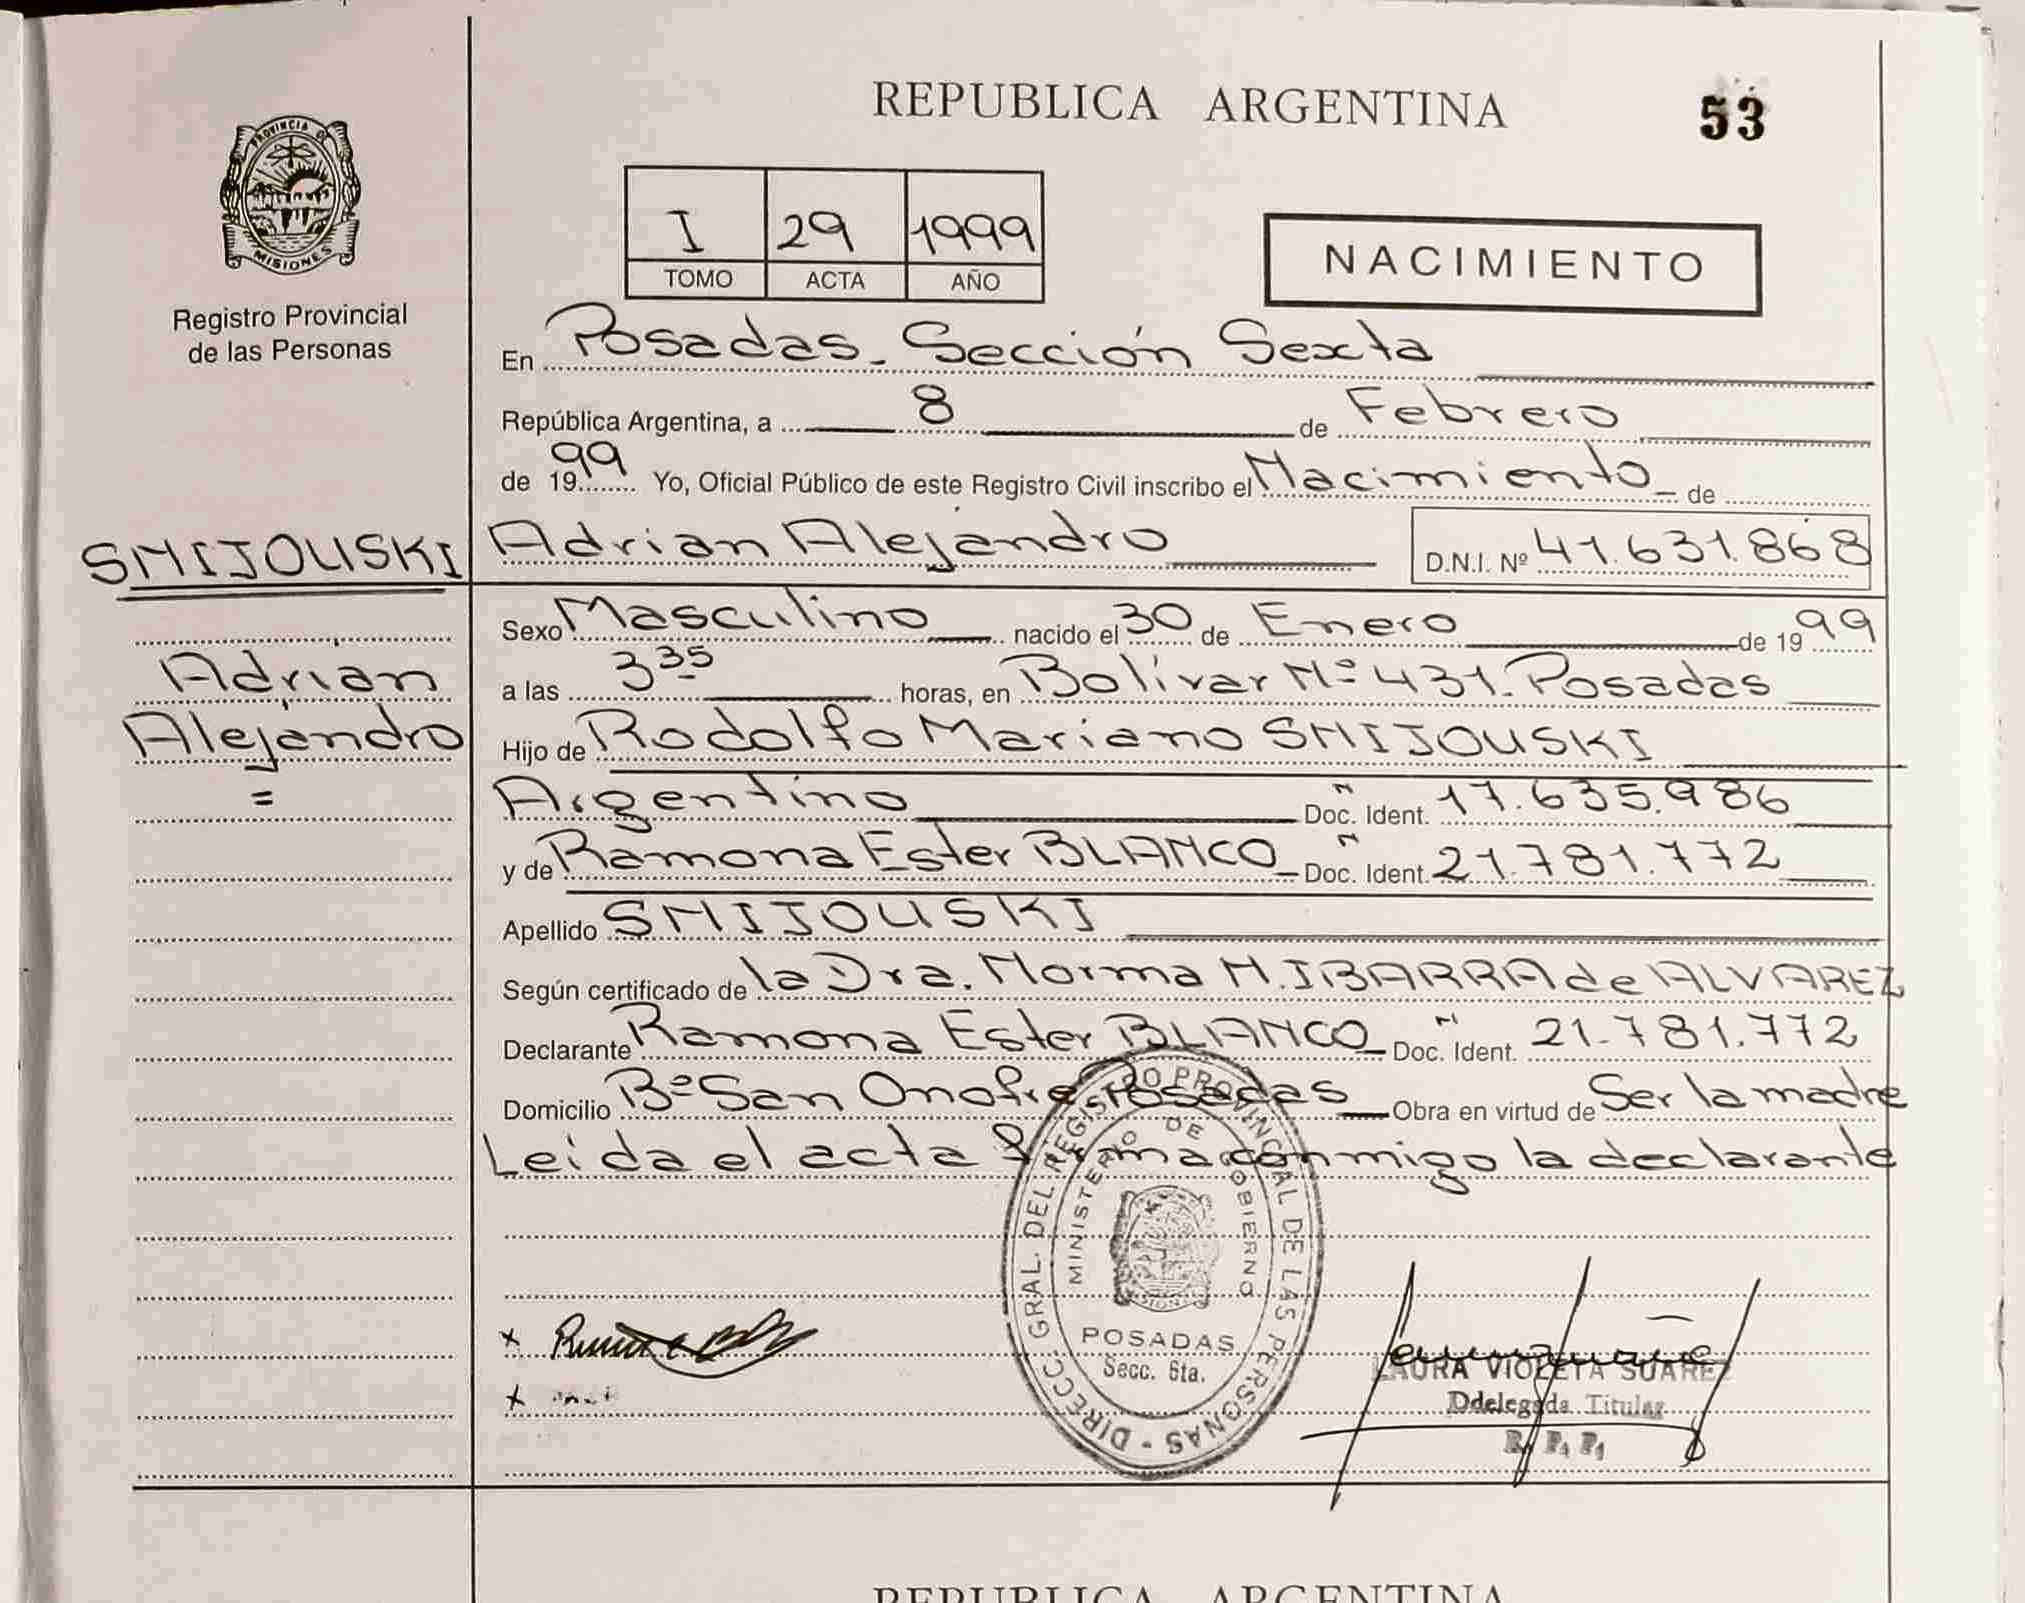 REPUBLICA ARGENTINA
53
PROVINCIA D
MISIONES
Registro Provincial
de las Personas
I 29 1999
TOMO ACTA AÑO
NACIMIENTO
En Posadas. Sección Sexta
República Argentina, a 8 de Febrero
de 1999 Yo, Oficial Público de este Registro Civil inscribo el Nacimiento de
SMIJOUSKI Adrian Alejandro D.N.I. Nº 41.631.868
Sexo Masculino nacido el 30 de Enero de 1999
Adrian
a las 3 35 horas, en Bolívar Nº 431. Posadas
Alejandro
Hijo de Rodolfo Mariano SMIJOUSKI
Argentino Doc. Ident. 17.635.986
y de Ramona Ester BLANCO Doc. Ident. 21.781.772
Apellido SMIJOUSKI
Según certificado de la Dra. Norma M. IBARRA de ALVAREZ
Declarante Ramona Ester BLANCO Doc. Ident. 21.781.772
Domicilio Bº San Onofre Posadas Obra en virtud de Ser la madre
Leida el acta firma conmigo la declarante
DIRECC. GRAL. DEL REGISTRO PROVINCIAL DE LAS PERSONAS -
MINISTERIO DE GOBIERNO
POSADAS
Secc. 6ta.
LAURA VIOLETA SUAREZ
Ddelegada Titular
R. P. P.
REPUBLICA ARGENTINA